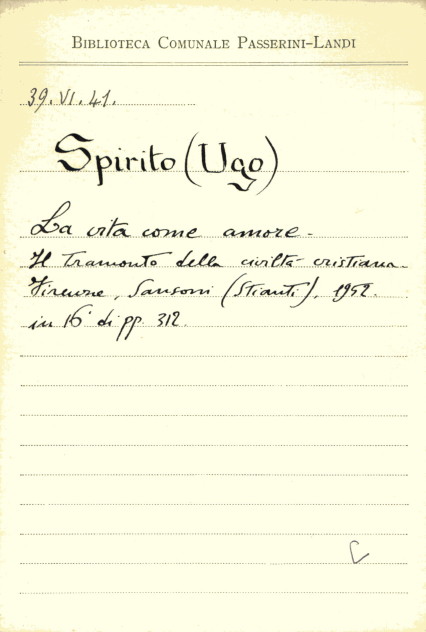 BIBLIOTECA COMUNALE PASSERINI-LANDI
39. VI. 41.
Spirito (Ugo)
La vita come amore -
Il tramonto della civiltà cristiana -
Firenze, Sansoni (Stianti), 1952.
in 16° di pp. 312.
C